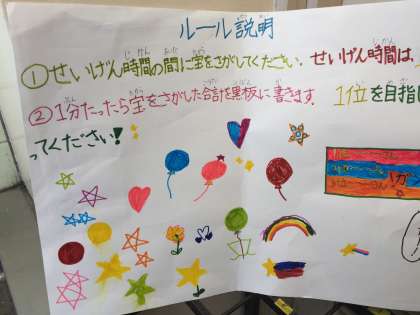 ルール説明
①せいげん時間の間に宝をさがしてください. せいげん時間は、
②1分たったら宝をさがした合計を黒板に書きます. 1位を目指
ってください!